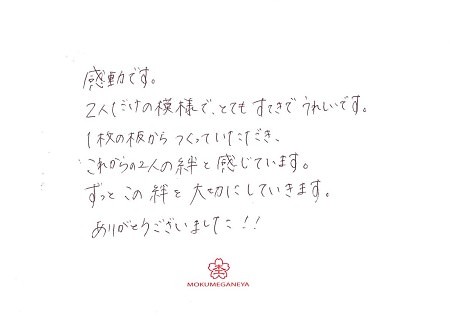 感動です。
2人だけの模様で、とても すてきで うれしいです。
1枚の板から つくっていただき、
これからの2人の絆と 感じています。
ずっと この 絆を 大切にしていきます。
ありがとうございました!!
MOKUMEGANEYA